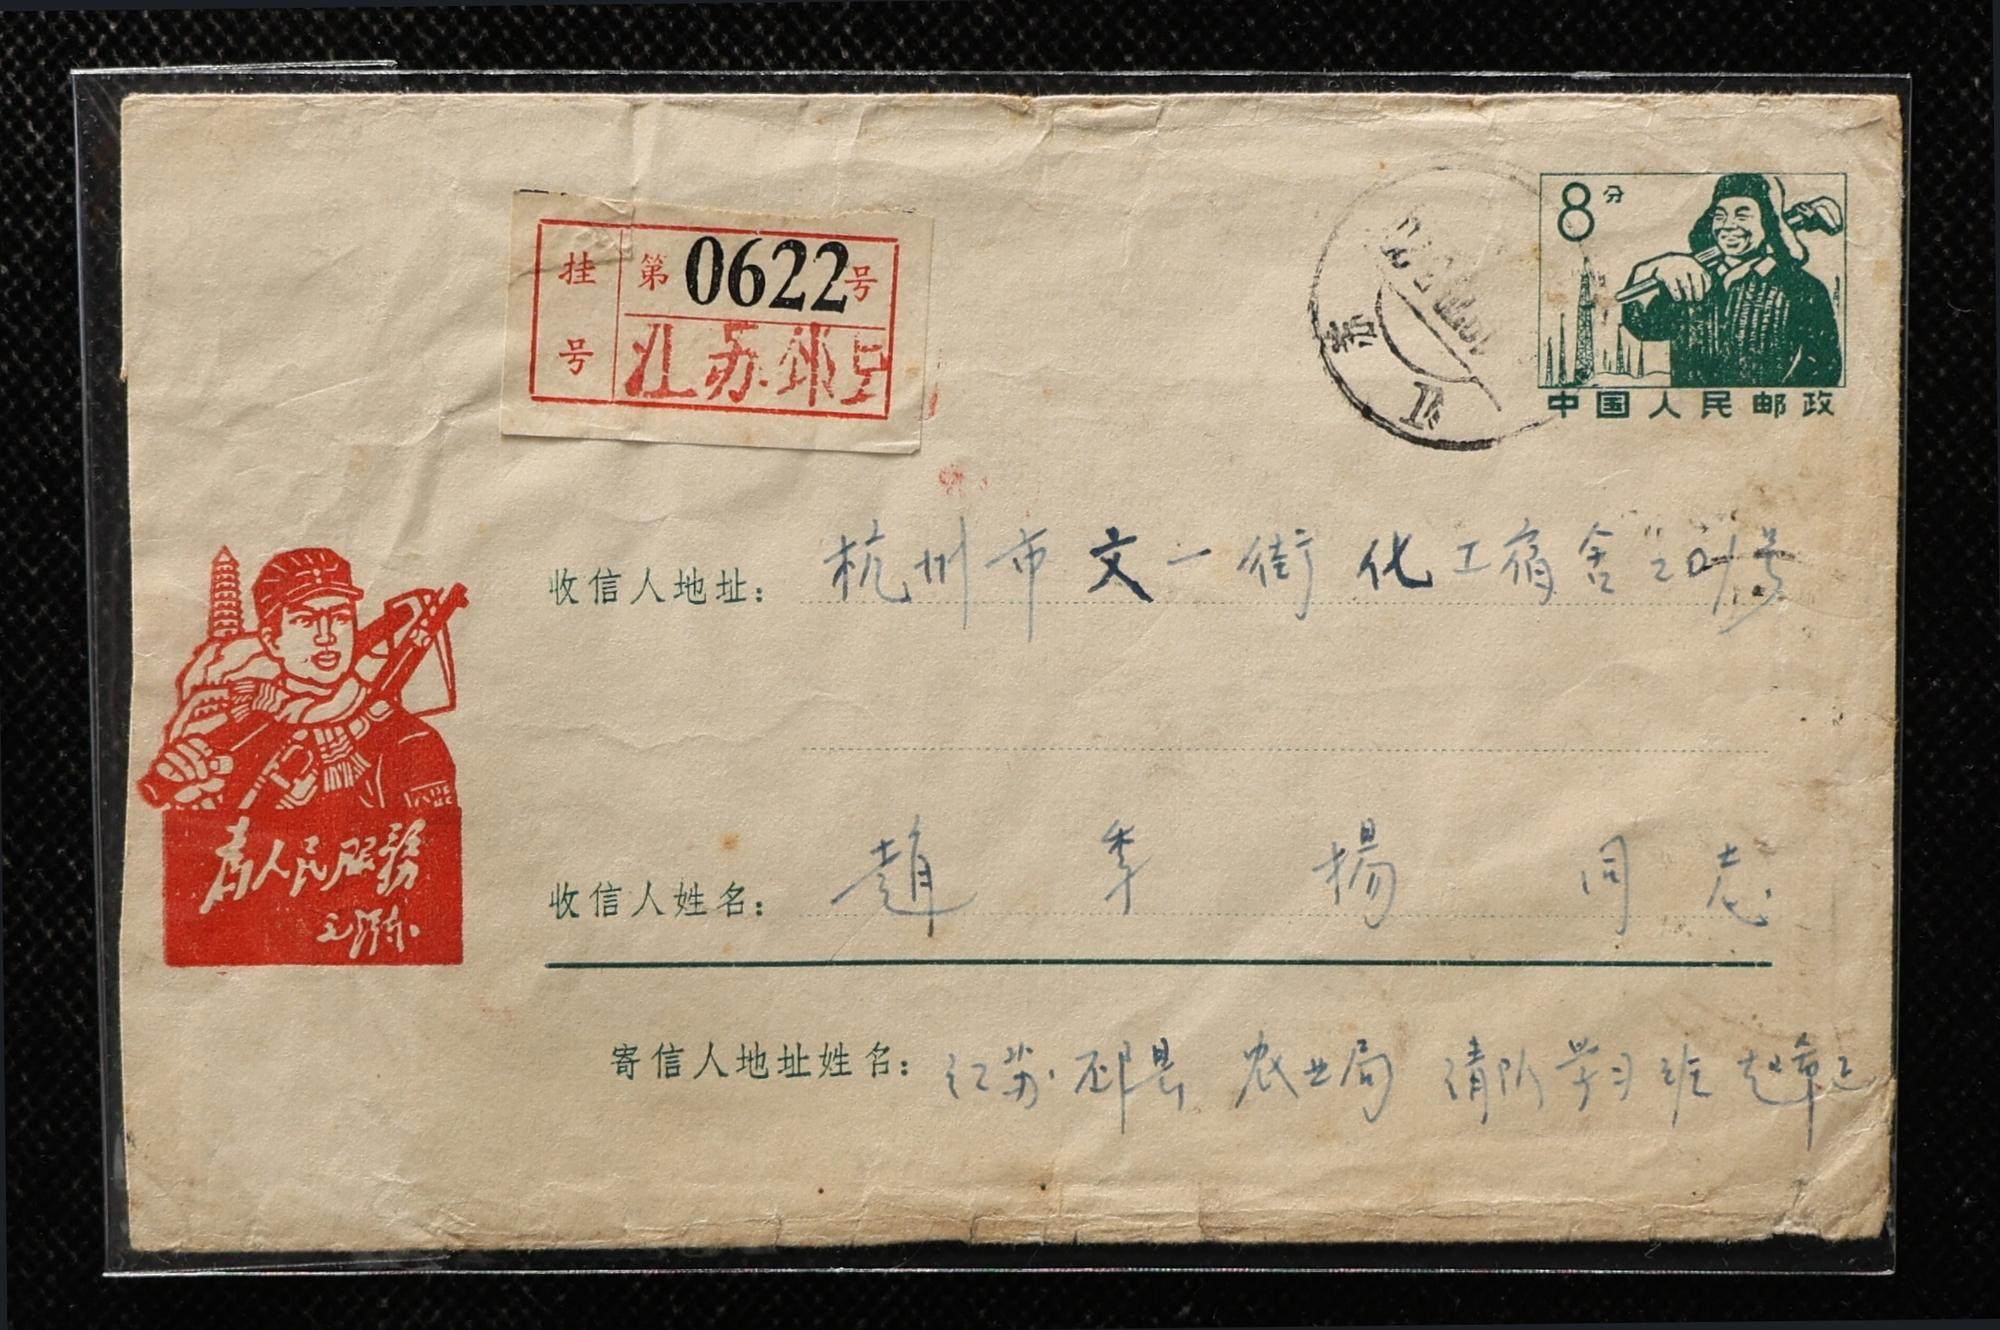 挂号
第0622号
江苏邳县
8分
中国人民邮政
苏
收信人地址：杭州市文一街化工宿舍201号
为人民服務
毛泽东
收信人姓名：趙季揚同志
寄信人地址姓名：江苏邳县农业局清队学习班